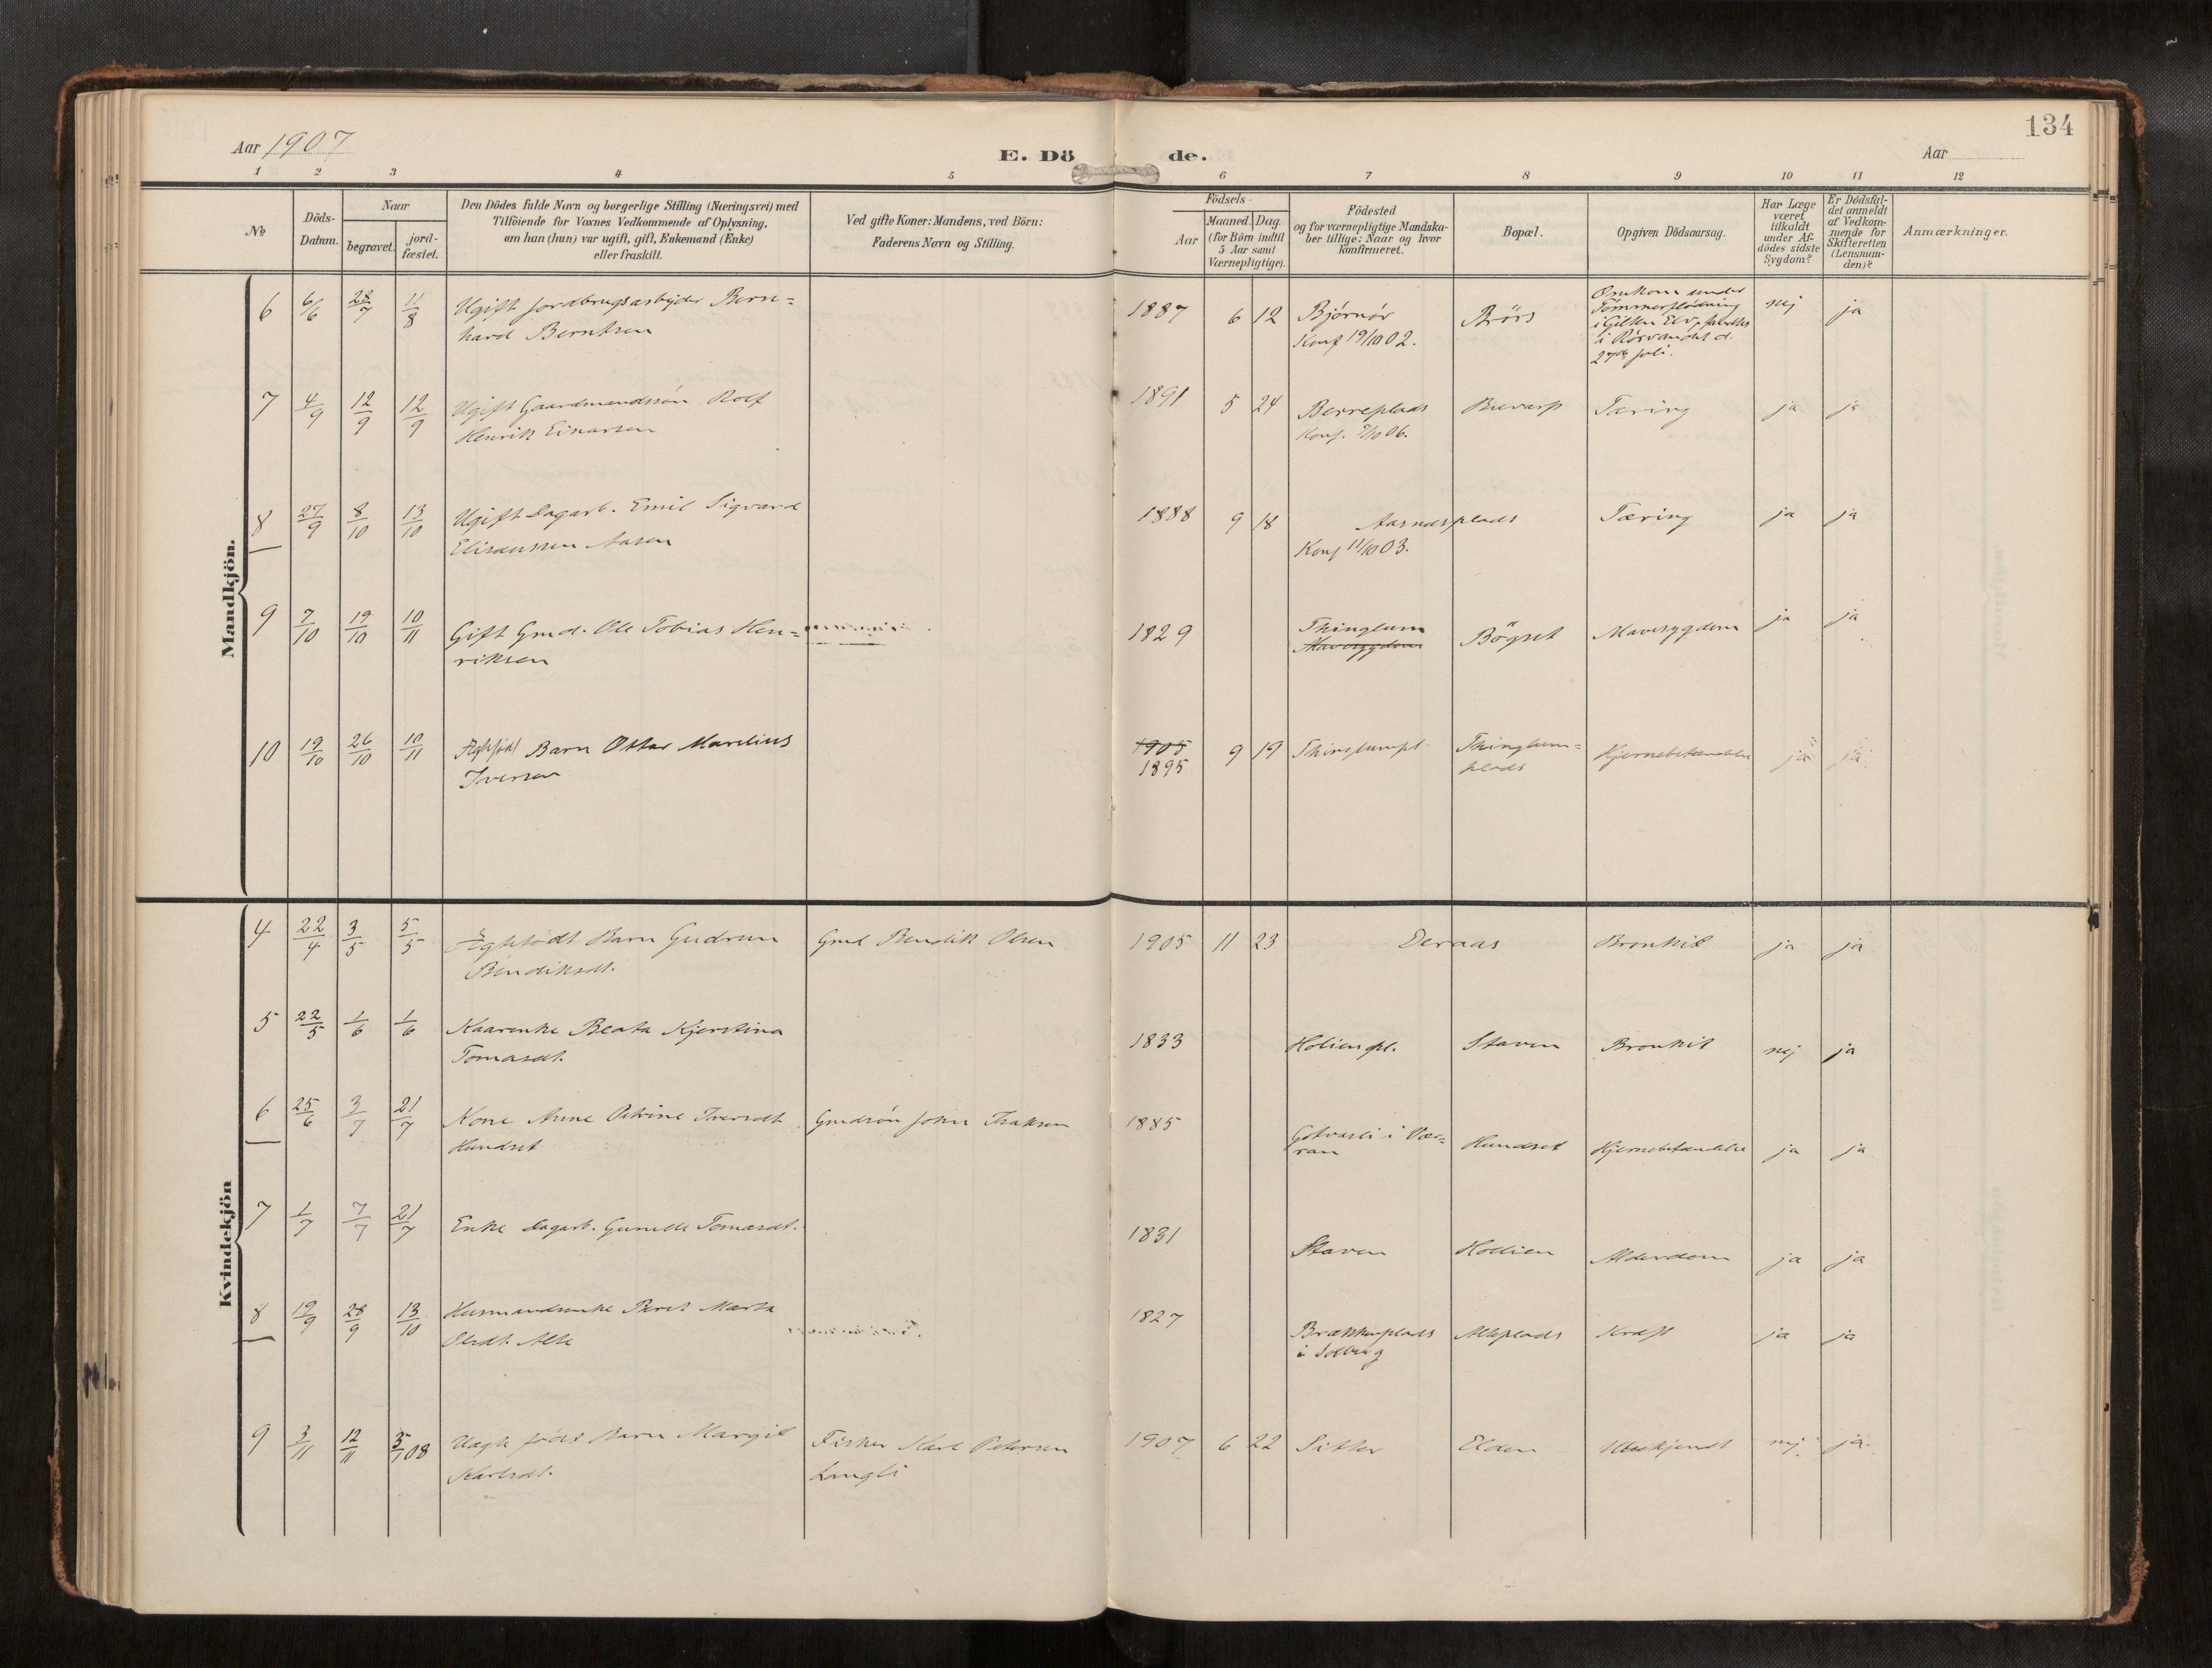 134
Aar 1907
E. Dö de.
Aar
1 2 3 4 5 6 7 8 9 10 11 12
№
Döds-
Datum.
Naar
begravet.
jord-
fæstet.
Den Dödes fulde Navn og borgerlige Stilling (Næringsvei) med
Tilföiende for Voxnes Vedkommende af Oplysning,
om han (hun) var ugift, gift, Enkemand (Enke)
eller fraskilt.
Ved gifte Koner: Mandens, ved Börn:
Faderens Navn og Stilling.
Födsels-
Aar
Maaned. Dag.
(for Börn indtil
5 Aar samt
Værnepligtige).
Födested
og for værnepligtige Mandska-
ber tillige: Naar og hvor
konfirmeret.
Bopæl.
Opgiven Dödsaarsag.
Har Læge
været
tilkaldt
under Af-
dödes sidste
Sygdom?
Er Dödsfal-
det anmeldt
af Vedkom-
mende for
Skifteretten
(Lensman-
den)?
Anmærkninger.
Mandkjön.
6 6/6 28/7 11/8 Ugift Jordbrugsarbejder Bern=
hard Berntsen
1887 6 12 Bjørnør
Konf 19/10 02.
Brörs
Omkom under
Tømmerflødning
i Elv, fandtes
i Rørvandet d.
27de juli.
nej ja
7 4/9 12/9 12/9 Ugift Gaardmandssøn Rolf
Henrik Einarsen
1891 5 24 Berreplads
Konf. 7/10 06.
Tæring ja ja
8 27/9 8/10 13/10 Ugift Dagarb. Emil Sigvard
Eliseussen Aasen
1888 9 18 Aasnesplads
Konf 11/10 03.
Tæring ja ja
9 7/10 19/10 10/11 Gift Gmd. Ole Tobias Hen=
riksen
1829 Thinglum
Mavesygdom
Bögset Mavesygdom ja ja
10 19/10 26/10 10/11 Barn Ottar Marelius
Iversen
1905
1895 9 19 Thinglumpl. Thinglum=
plads
Hjernebetændelse ja ja
Kvindekjön
4 22/4 3/5 5/5 Ægtefødt Barn Gudrun
Bendiksdt.
Gmd Bendik Olsen
1905 11 23 Deraas Bronkit ja ja
5 22/5 1/6 1/6 Kaarenke Beata Kjerstina
Tomasdt.
1833 Holien pl. Staven Bronkit nej ja
6 25/6 3/7 21/7 Kone Anne Petrine Iversdt
Hundset
Gmdsön John Isaksen
1885 i Vær=
ran
Hundset Hjernebetændelse ja ja
7 1/7 7/7 21/7 Enke Dagarb. Gunelle Tomasdt.
1831 Staven Hollien Alderdom ja ja
8 19/9 28/9 13/10 Husmandsenke Beret Marta
Olsdt. Alte
1827 Brækkenplads
i Solberg
Alteplads Kræft ja ja
9 3/11 12/11 5/1 08 Uægte født Barn Margit
Karlsdt.
Fisker Karl Petersen
Lungli
1907 6 22 Sitter Elden Ubekjendt nej. ja.